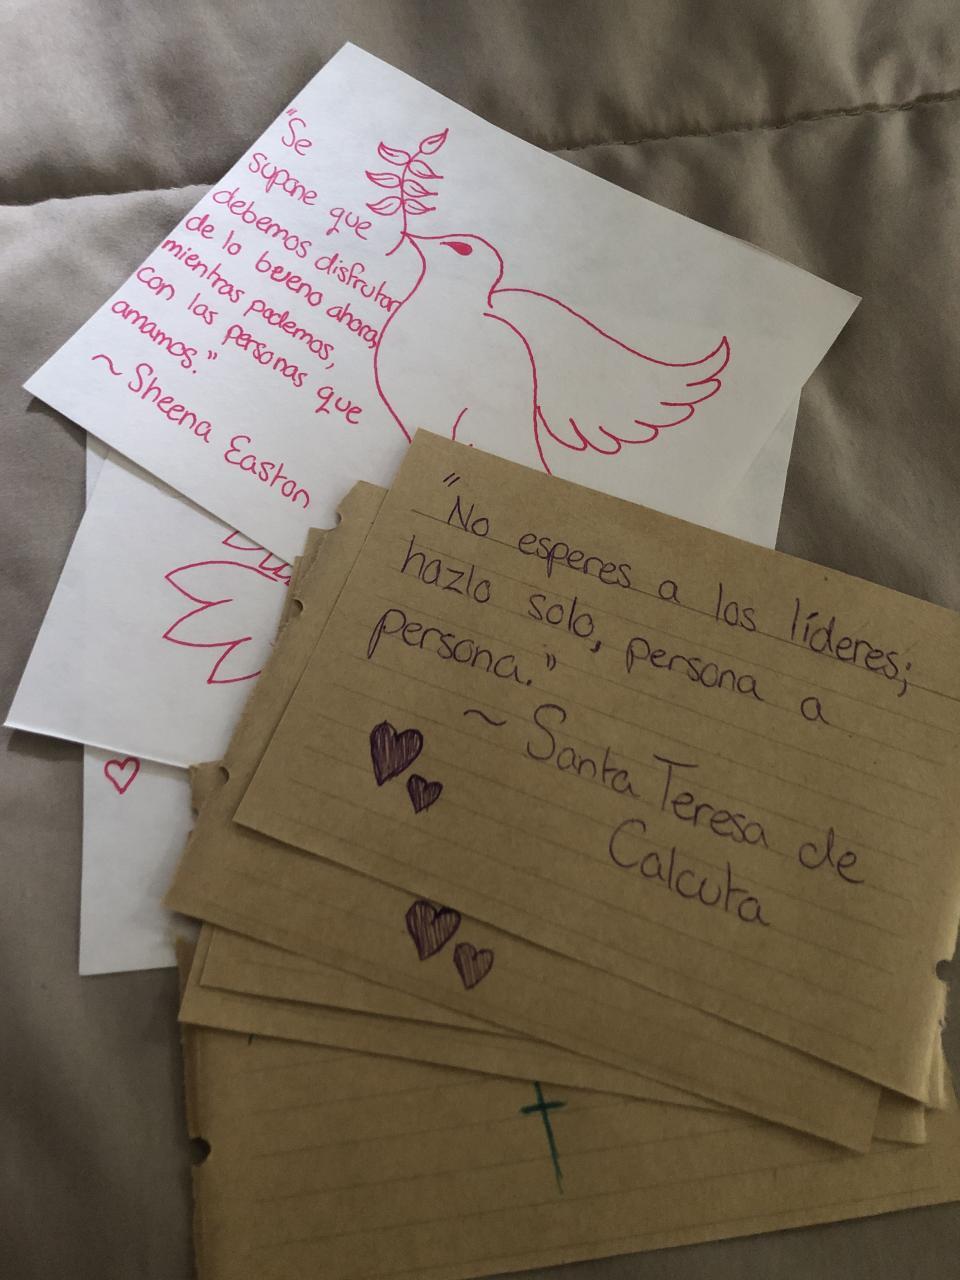 "Se
supone que
debemos disfrutar
de lo bueno ahora,
mientras podemos,
con las personas que
amamos."
~Sheena Easton
"No esperes a los líderes;
hazlo solo, persona a
persona."
~ Santa Teresa de
Calcuta